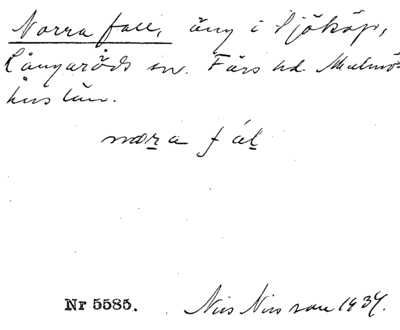 Norra fall, äng i Sjököp,
Långaröds sn. Färs hd. Malmö-
hus län.
nora fál
Nr 5585. Nils Nilsson 1934.